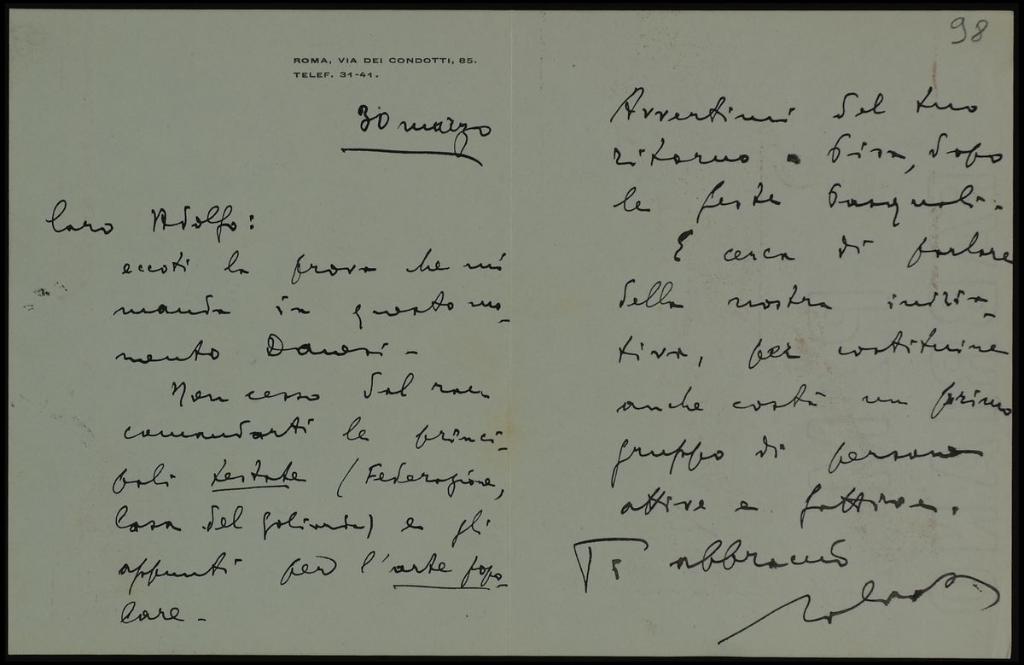 98
ROMA, VIA DEI CONDOTTI, 85.
TELEF. 31-41.
30 marzo
Caro Adolfo:
eccoti la prova che mi
manda in questo mo-
mento Danesi -
Non cesso dal rac
comandarti le princi-
pali testate (Federazione,
Casa del Goliardo) e gli
appunti per l'arte popo-
lare -
Avvertimi del tuo
ritorno a Pisa, dopo
le feste Pasquali.
E cerca di parlare
della nostra inizia-
tiva, per costituire
anche costà un primo
gruppo di persone
attive e fattive.
Ti abbraccio